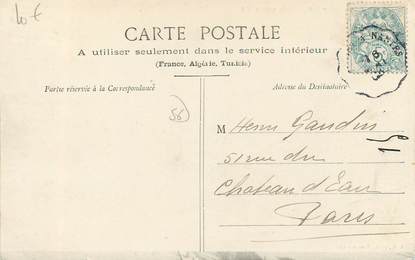 10 €
CARTE POSTALE
A utiliser seulement dans le service intérieur
(France, Algérie, Tunisie)
Partie réservée à la Correspondance
Adresse du Destinataire
56
M Henri Gaudin
51 rue du
Chateau d'Eau
Paris
15
NANTES